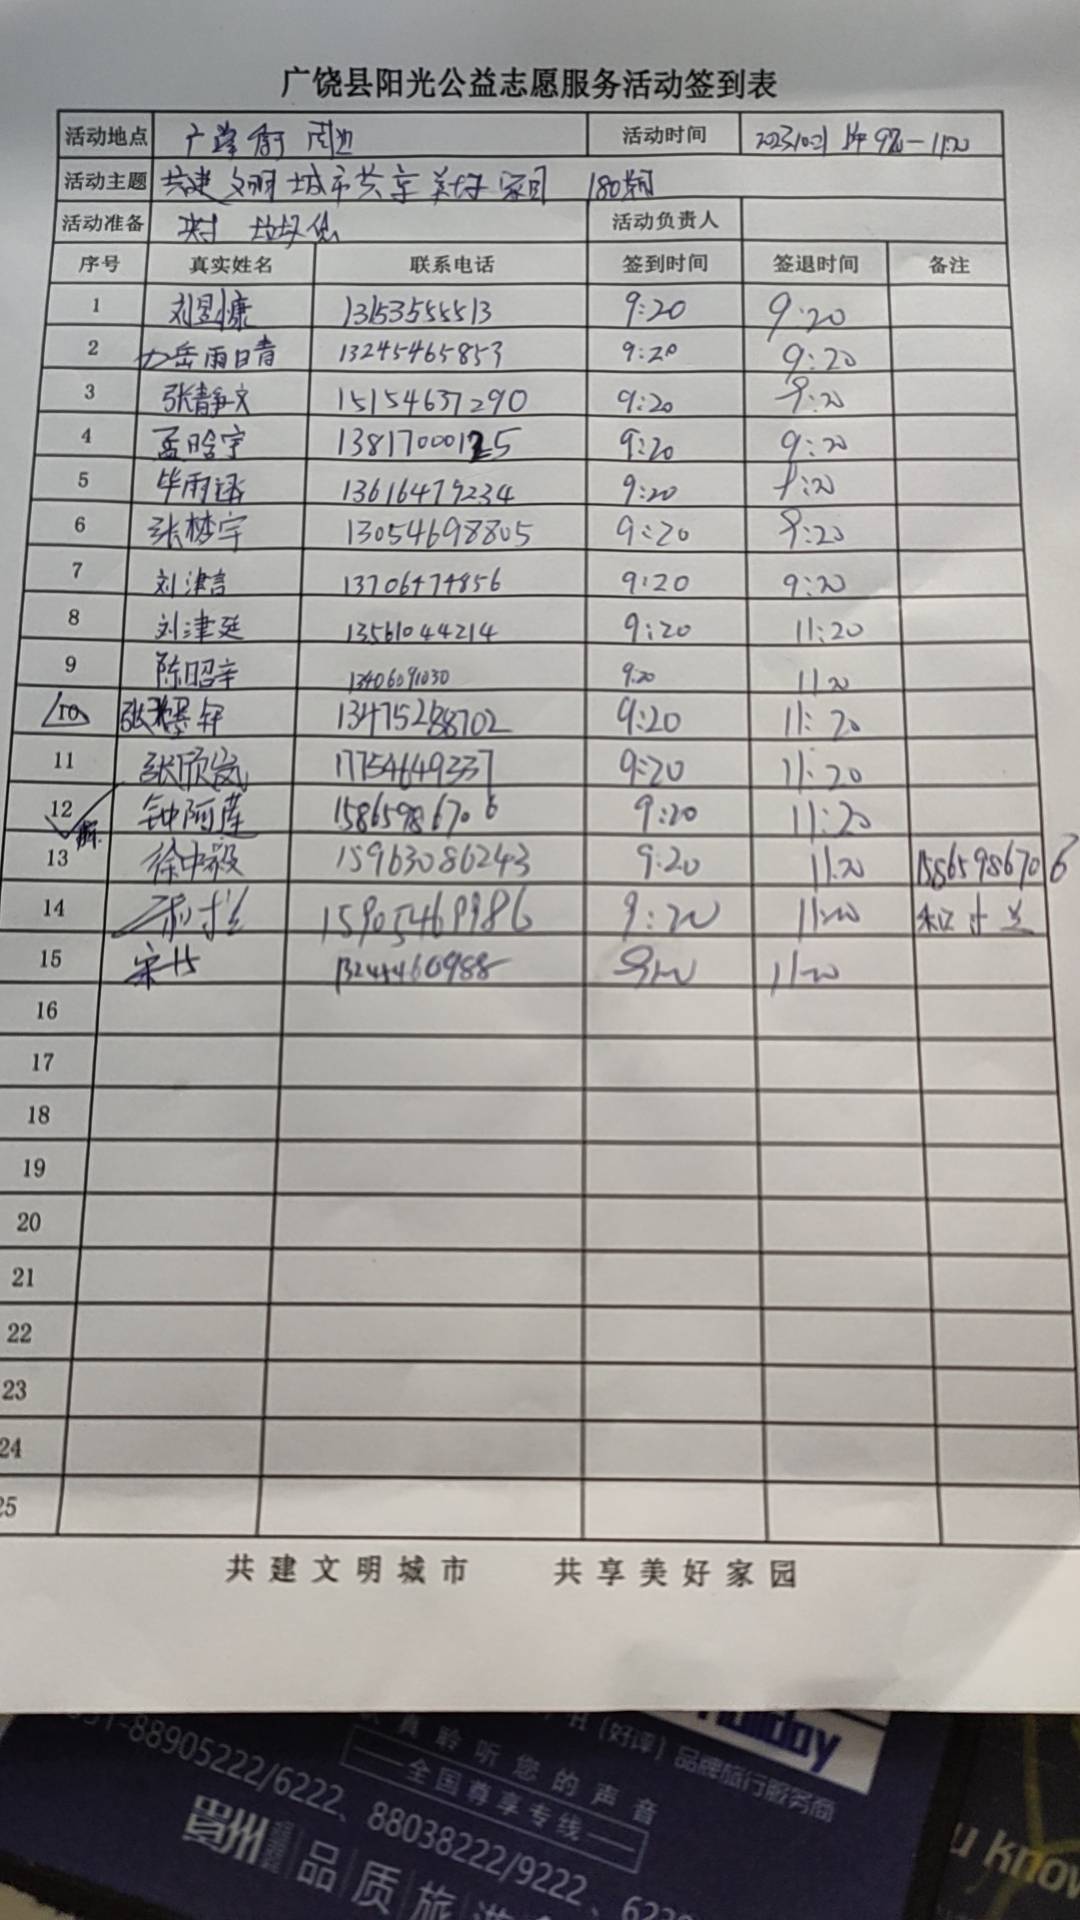 广饶县阳光公益志愿服务活动签到表
活动地点 广 街 周边 活动时间 9:20-11:20
活动主题 共建文明城市共享美好家园 180期
活动准备 垃圾袋 活动负责人
序号 真实姓名 联系电话 签到时间 签退时间 备注
1 刘昱慷 13153555513 9:20 9:20
2 岳雨晴 13245465853 9:20 9:20
3 张静文 15154637290 9:20 9:20
4 孟晗宇 13817000125 9:20 9:20
5 毕雨 13616479234 9:20 9:20
6 张梦宇 13054698805 9:20 9:20
7 刘津言 13706474856 9:20 9:20
8 刘津廷 13561044214 9:20 11:20
9 陈昭宇 13406091030 9:20 11:20
10 张 轩 13475288702 9:20 11:20
11 张欣岚 17754649337 9:20 11:20
12 钟阿莲 15865986706 9:20 11:20
13 徐中毅 15963086243 9:20 11:20 15865986706
14 15905469986 9:20 11:20
15 宋 13245460988 9:20 11:20
16
17
18
19
20
21
22
23
24
25
共建文明城市 共享美好家园
(好评)品牌旅行服务商
真聆听您的声音
全国尊享专线
-88905222/6222、88038222/9222、
品质旅游
u know